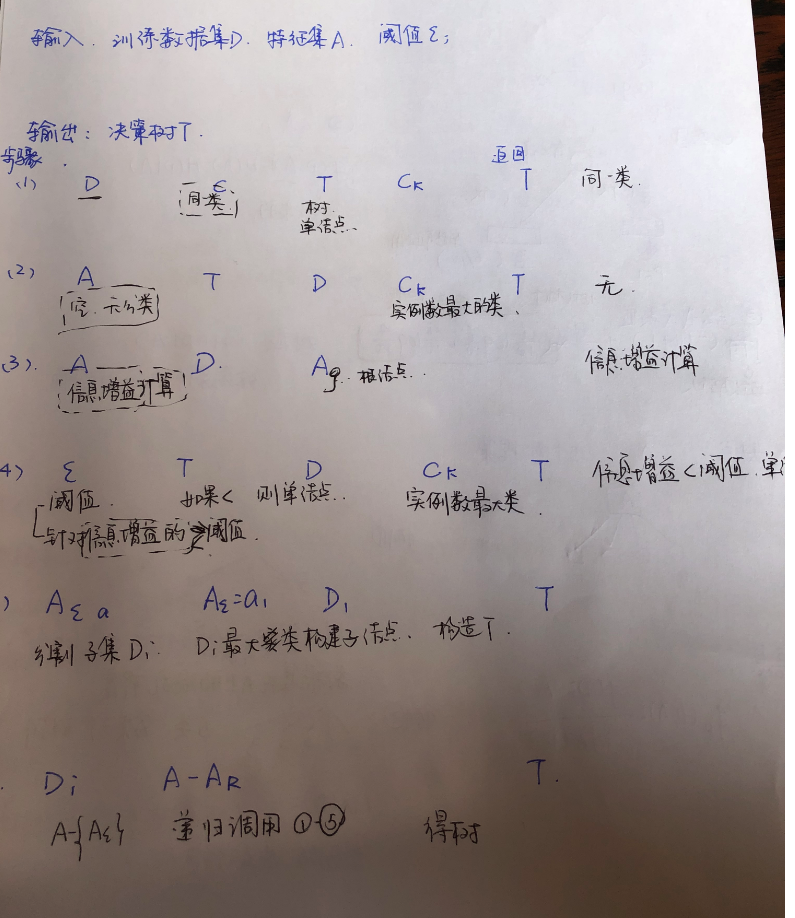 输入. 训练数据集D. 特征集A. 阈值ε;
输出: 决策树T.
步骤.
返回
(1) D ε T CK T 同一类.
同一类. 树.
单结点.
(2) A T D CK T 无.
空. 无分类 实例数最大的类.
(3). A D. Ag. 根结点.. 信息增益计算
信息增益计算
4) ε T D CK T 信息增益<阈值.单
阈值. 如果< 则单结点.. 实例数最大类.
针对信息增益的阈值.
) Aε a Aε=a1 D1 T
分割子集Di. Di最大类构建子结点. 构造T.
. Di A-AR T.
A-{Aε} 递归调用①-⑤ 得树